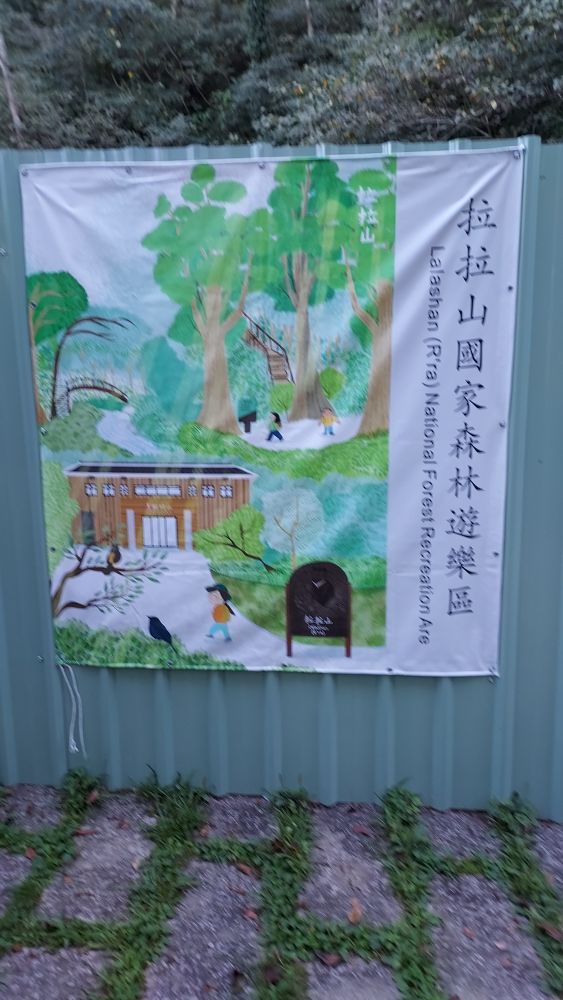 拉拉山國家森林遊樂區
Lalashan (R'ra) National Forest Recreation Are
拉拉山
拉拉山